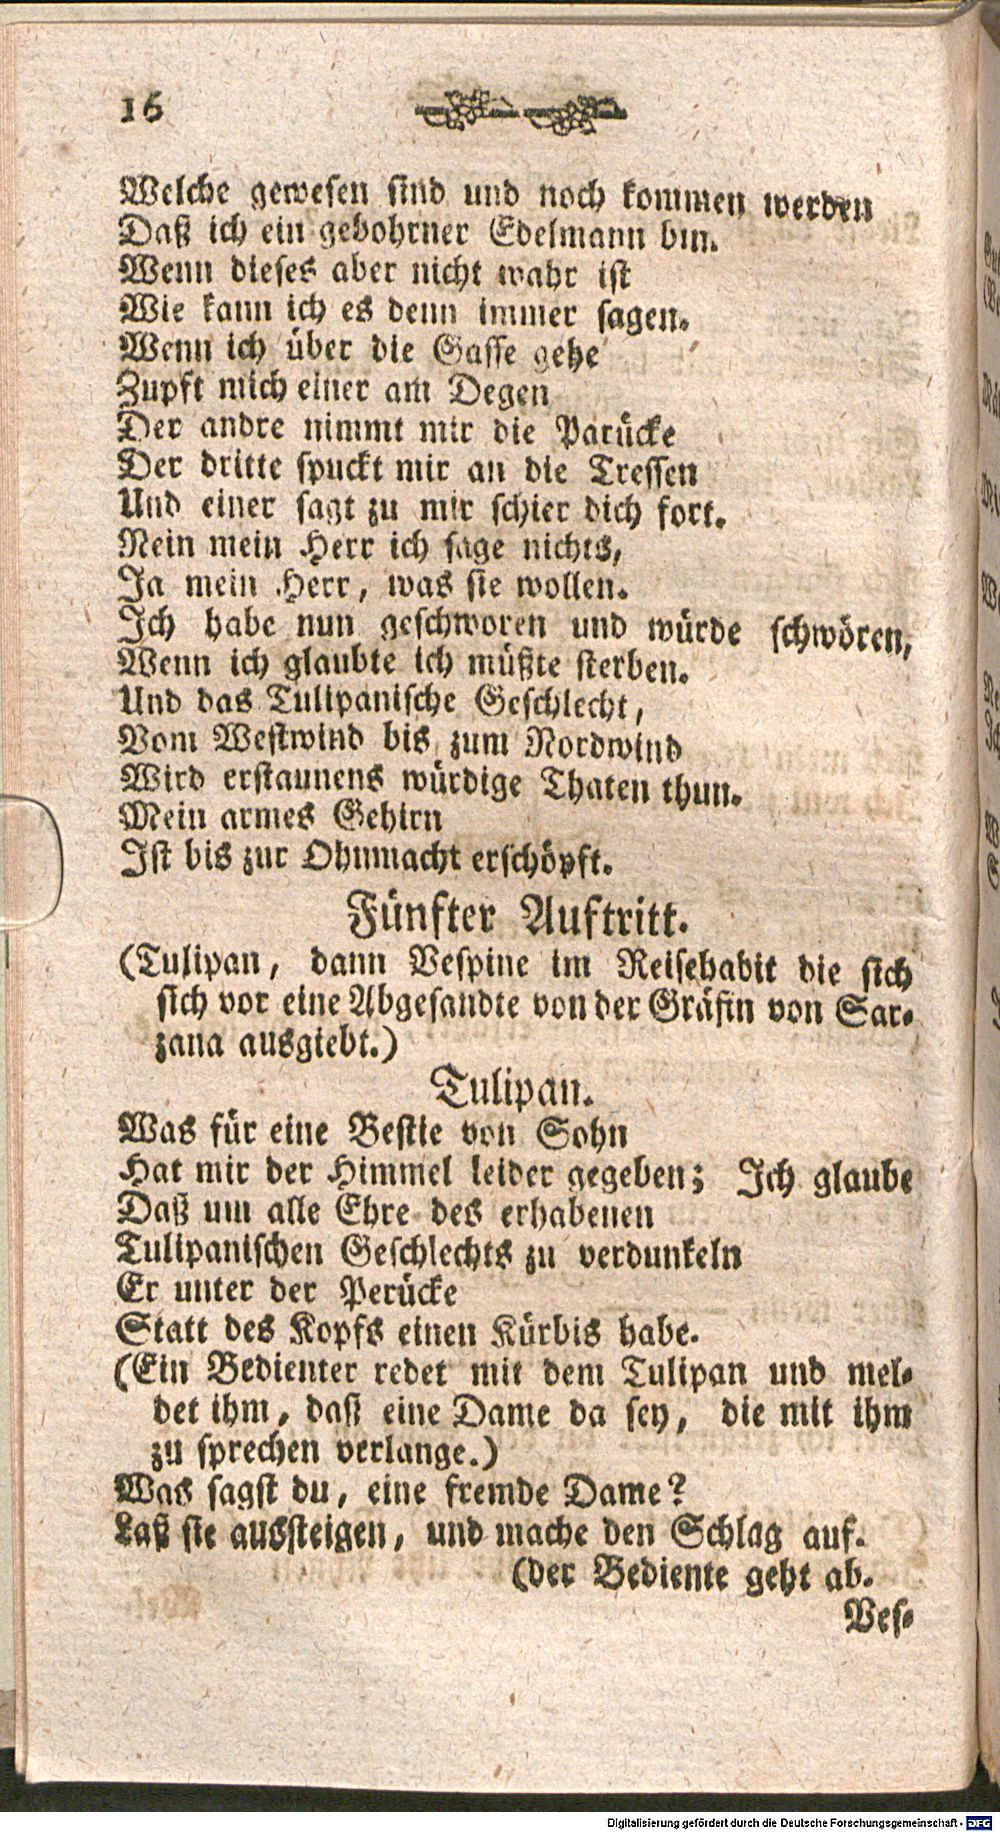 16
Welche gewesen sind und noch kommen werden
Daß ich ein gebohrner Edelmann bin.
Wenn dieses aber nicht wahr ist
Wie kann ich es denn immer sagen.
Wenn ich über die Gasse gehe
Zupft mich einer am Degen
Der andre nimmt mir die Parücke
Der dritte spuckt mir an die Tressen
Und einer sagt zu mir schier dich fort.
Nein mein Herr ich sage nichts,
Ja mein Herr, was sie wollen.
Ich habe nun geschworen und würde schwören,
Wenn ich glaubte ich müßte sterben.
Und das Tulipanische Geschlecht,
Vom Westwind bis zum Nordwind
Wird erstaunens würdige Thaten thun.
Mein armes Gehirn
Ist bis zur Ohnmacht erschöpft.
Fünfter Auftritt.
(Tulipan, dann Vespine im Reisehabit die sich
sich vor eine Abgesandte von der Gräfin von Sar-
zana ausgiebt.)
Tulipan.
Was für eine Bestie von Sohn
Hat mir der Himmel leider gegeben; Ich glaube
Daß um alle Ehre des erhabenen
Tulipanischen Geschlechts zu verdunkeln
Er unter der Perücke
Statt des Kopfs einen Kürbis habe.
(Ein Bedienter redet mit dem Tulipan und mel-
det ihm, dasi eine Dame da sey, die mit ihm
zu sprechen verlange.)
Was sagst du, eine fremde Dame?
Laß sie aussteigen, und mache den Schlag auf.
(der Bediente geht ab.
Ves-
Digitalisierung gefördert durch die Deutsche Forschungsgemeinschaft - DFG